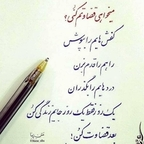 میخواهی قضاوتم کنی؟
کفش هایم را بپوش
راهم را قدم بزن
دردهایم را بگذران
یک روز فقط یک روز جایم زندگی کن
بعد قضاوت کن!